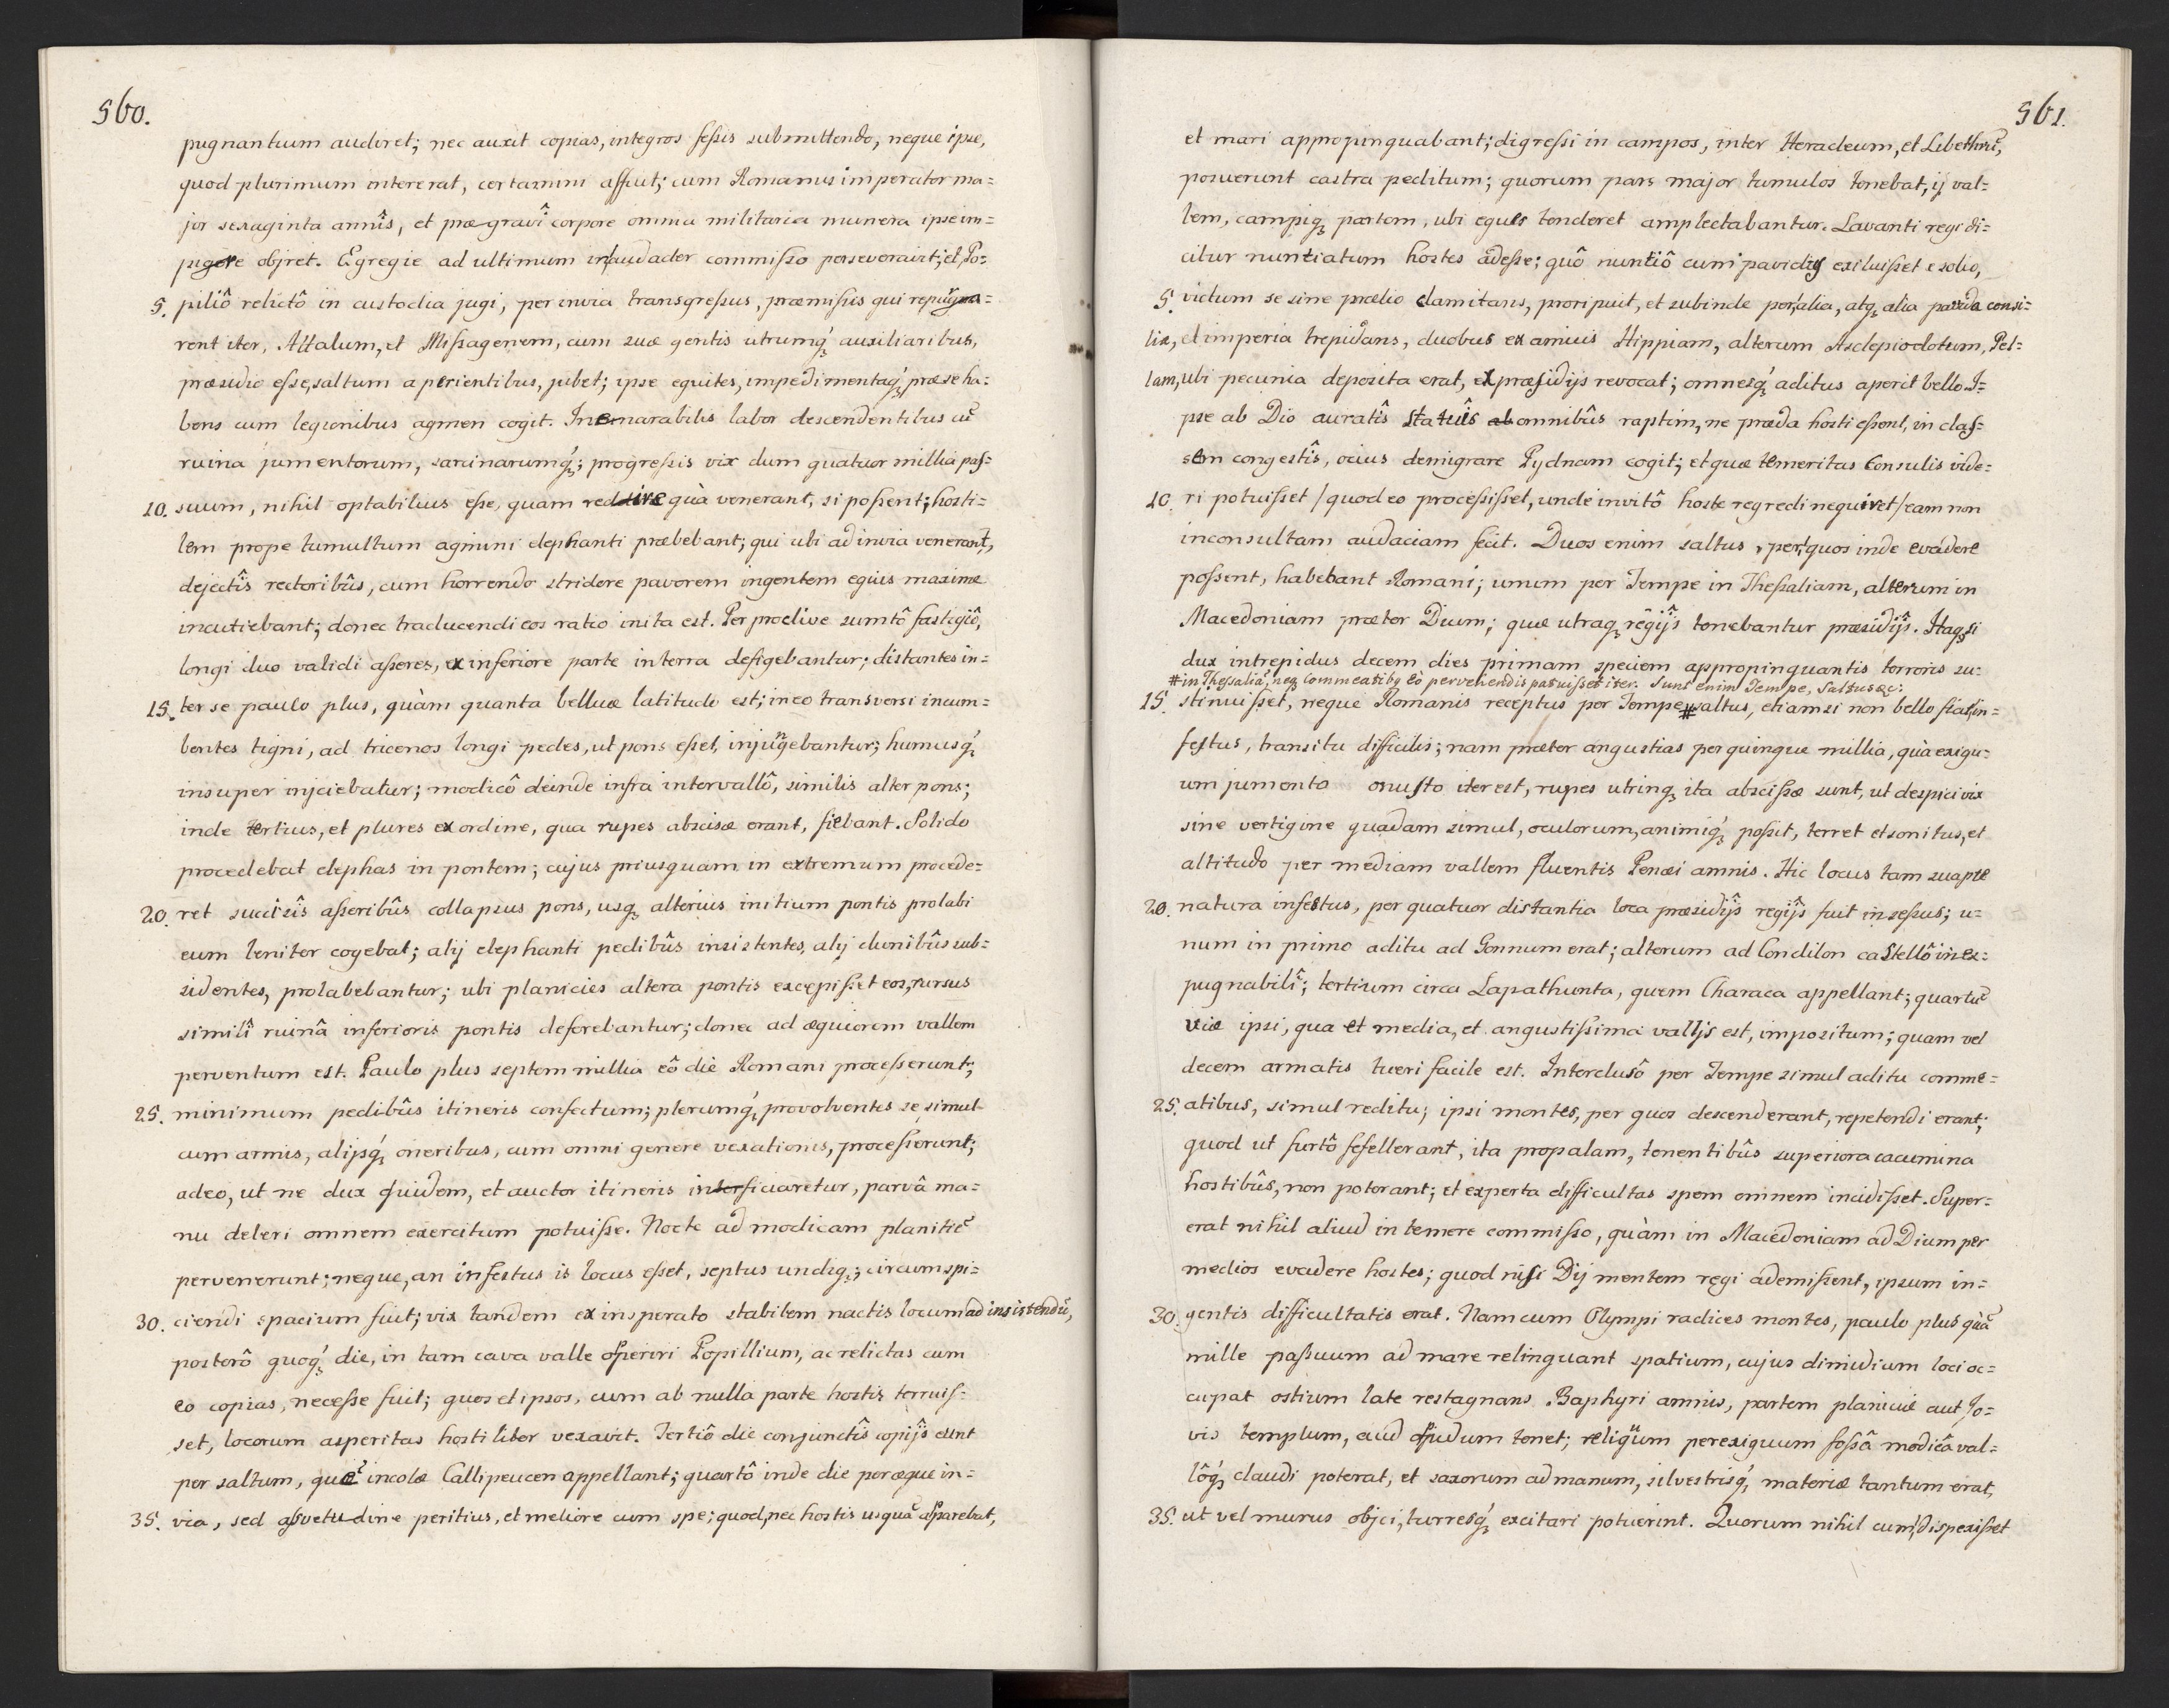 560.
pugnantium audiret; nec auxit copias, integros feßis submittendo, neque ipse,
quod plurimum intererat, certamini affuit; cum Romanus imperator ma=
jor sexaginta annîs, et præ-gravî corpore omnia militaria munera ipse im=
pigere objret. Egregie ad ultimum in audacter commißo perseveravit; et, Po=
5. piliô relictô in custodia jugi, per invia transgreßus, præmißis qui repurga=
rent iter, Attalum, et Mißagenem, cum suæ gentis utrumq́ auxiliaribus,
præsidio eße, saltum aperientibus, jubet; ipse equites, impedimentaq́ præ se ha=
bens cum legionibus agmen cogit. Inenarabilis labor descendentibus cū
ruina jumentorum, sarcinarumq́; progreßis vix dum quatuor millia paß=
10. suum, nihil optabilius eße, quam redire quà venerant, si poßent; hosti=
lem prope tumultum agmini elephanti præbebant; qui ubi ad invia venerant,
dejectîs rectoribûs, cum horrendo stridore pavorem ingentem equis maxime
incutiebant; donec traducendi eos ratio inita est. Per proclive sumtô fastigiô,
longi duo validi aßeres, ex inferiore parte in terra defigebantur; distantes in=
15. ter se paulo plus, quàm quanta belluæ latitudo est; in eo transversi incum=
bentes tigni, ad tricenos longi pedes, ut pons eßet, injungebantur; humusq́
insuper injciebatur; modicô deinde infra intervallô, similis alter pons;
inde tertius, et plures ex ordine, qua rupes abscisæ erant, fiebant. Solido
procedebat elephas in pontem; cujus priusquam in extremum procede=
20. ret succisîs aßeribûs collapsus pons, usq, alterius initium pontis prolabi
eum leniter cogebat; alij elephanti pedibûs insistentes, alij clunibûs sub=
sidentes, prolabebantur; ubi planicies altera pontis excepißet eos, rursus
similî ruinâ inferioris pontis deferebantur; donec ad æquiorem vallem
perventum est. Paulo plus septem millia eô die Romani proceßerunt;
25. minimum pedibûs itineris confectum; plerumq́, provolventes se simul
cum armis, alijsq́, oneribus, cum omni genere vexationis, proceßerunt;
adeo, ut ne dux quidem, et auctor itineris inficiaretur, parvâ ma=
nu deleri omnem exercitum potuiße. Nocte ad modicam planitiē
pervenerunt; neque, an infestus is locus eßet, septus undiq,; circumspi=
30. ciendi spacium fuit; vix tandem ex insperato stabilem nactis locum ad insistendū,
posterô quoq́, die, in tam cava valle opperiri Popillium, ac relictas cum
eo copias, neceße fuit; quos et ipsos, cum ab nulla parte hostis terruis=
set, locorum asperitas hostiliter vexavit. Tertiô die conjunctîs copijs eunt
per saltum, quē incolæ Callipeucen appellant; quartô inde die per æque in=
35. via, sed aßvetudine peritius, et meliore cum spe; quod, nec hostis usquā apparebat,
561.
et mari appropinquabant; digreßi in campos, inter Heracleum, et Libethrū,
posuerunt castra peditum; quorum pars major tumulos tenebat, ij val=
lem, campiq, partem, ubi eques tenderet amplectabantur. Lavanti regi di=
citur nuntiatum hostes adeße; quô nuntiô cum pavidus exiluißet e solio,
5. victum se sine prælio clamitans, proripuit, et subinde per, alia, atq, alia pavida consi=
lia, et imperia trepidans, duobus ex amicis Hippiam, alterum Asclepiodotum, Pel=
lam, ubi pecunia deposita erat, ex præsidijs revocat; omnesq́ aditus aperit bello. I=
pse ab Dio auratîs statuîs omnibûs raptim, ne præda hosti eßent, in clas=
sem congestîs, ocius demigrare Pydnam cogit; et quæ temeritas Consulis vide=
10. ri potuißet / quod eo proceßißet, unde invitô hoste regredi nequiret / eam non
inconsultam audaciam fecit. Duos enim saltus, per, quos inde evadere
poßent, habebant Romani; unum per Tempe in Theßaliam, alterum in
Macedoniam præter Dium; quæ utraq, regijs tenebantur præsidijs. Itaq, si
dux intrepidus decem dies primam speciem appropinquantis terroris su=
# in Theßaliā, neq, commeatibq eò pervehendis patuißet iter. Sunt enim Tempe, Saltus &c:
15. stinuißet, neque Romanis receptus per Tempe # saltus, etiamsi non bello fiat in=
festus, transitu difficilis; nam præter angustias per quinque millia, quà exigu=
um jumento onusto iter est, rupes utrinq, ita absciße sunt, ut despici vix
sine vertigine quadam simul, oculorum, animiq́, poßit, terret et sonitus, et
altitudo per mediam vallem fluentis Penæi amnis. Hic locus tam suapte
20. natura infestus, per quatuor distantia loca præsidijs regijs fuit inseßus; u=
num in primo aditu ad Gonnum erat; alterum ad Condilon castellô inex=
pugnabilî; tertium circa Lapathunta, quem Characa appellant; quartū
viæ ipsi, qua et media, et angustißima vallis est, impositum; quam vel
decem armatis tueri facile est. Interclusô per Tempe simul aditu comme=
25. atibus, simul reditu; ipsi montes, per quos descenderant, repetendi erant;
quod ut furtô fefellerant, ita propalam, tenentibûs superiora cacumina
hostibûs, non poterant; et experta difficultas spem omnem incidißet. Super=
erat nihil aliud in temere commißo, quàm in Macedoniam ad Dium per
medios evadere hostes; quod nisi Dij mentem regi ademißent, ipsum in=
30. gentis difficultatis erat. Nam cum Olympi radices montes, paulo plus quā
mille paßuum ad mare relinquant spatium, cujus dimidium loci oc=
cupat ostium late restagnans Baphyri amnis, partem planiciæ aut Jo=
vis templum, aud oppidum tenet; reliquum perexiguum foßâ modicâ val=
lôq́, claudi poterat, et saxorum ad manum, silvestrisq́, materiæ tantum erat,
35. ut vel murus objci, turresq́, excitari potuerint. Quorum nihil cum, dispexißet